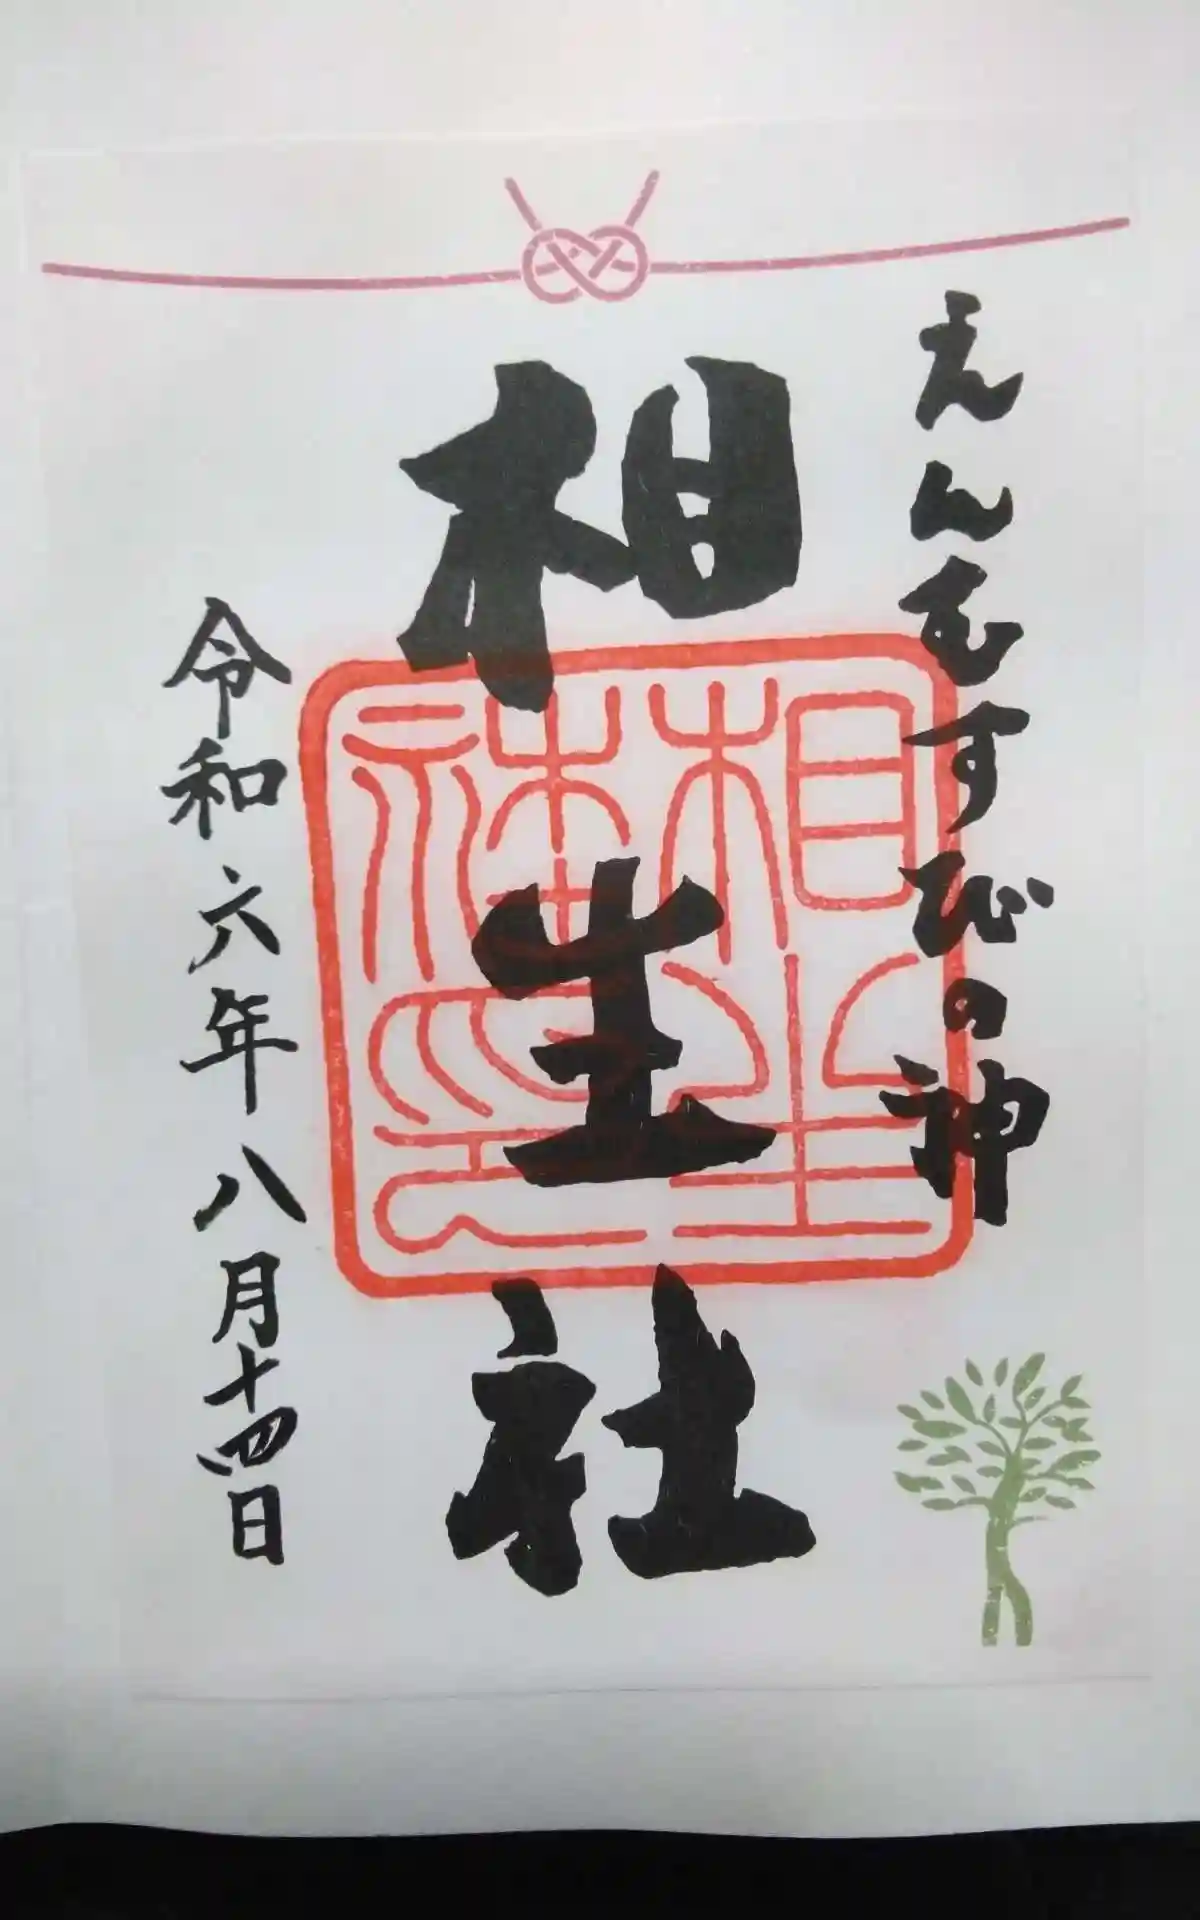 えんむすびの神
相生社
令和六年八月十四日